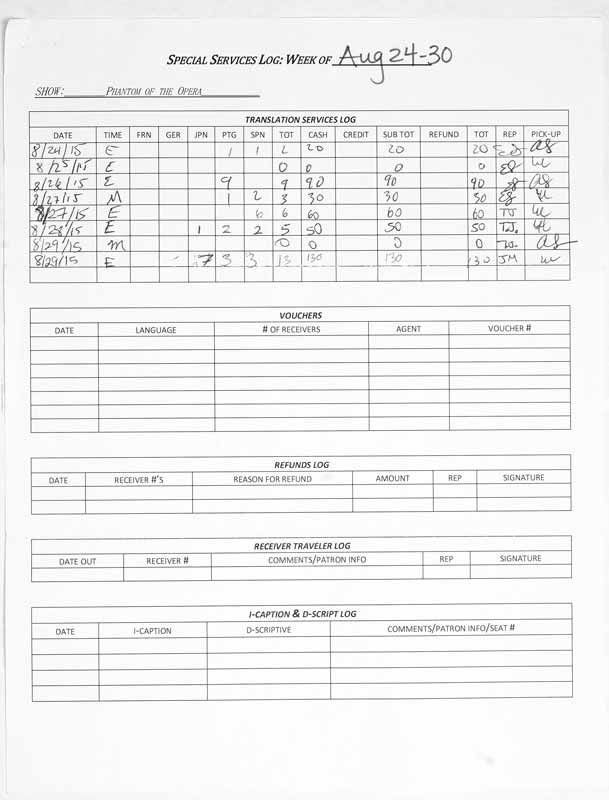 SPECIAL SERVICES LOG: WEEK OF Aug 24-30
SHOW: PHANTOM OF THE OPERA
TRANSLATION SERVICES LOG
DATE TIME FRN GER JPN PTG SPN TOT CASH CREDIT SUB TOT REFUND TOT REP PICK-UP
8/24/15 E 1 1 2 20 20 20
8/25/15 E 0 0 0 0
8/26/15 E 9 9 90 90 90
8/27/15 M 1 2 3 30 30 30
8/27/15 E 6 6 60 60 60 TJ
8/28/15 E 1 2 2 5 50 50 50 TJ.
8/29/15 M 0 0 0 0
8/29/15 E 7 3 3 13 130 130 130 JM
VOUCHERS
DATE LANGUAGE # OF RECEIVERS AGENT VOUCHER #
REFUNDS LOG
DATE RECEIVER #'S REASON FOR REFUND AMOUNT REP SIGNATURE
RECEIVER TRAVELER LOG
DATE OUT RECEIVER # COMMENTS/PATRON INFO REP SIGNATURE
I-CAPTION & D-SCRIPT LOG
DATE I-CAPTION D-SCRIPTIVE COMMENTS/PATRON INFO/SEAT #